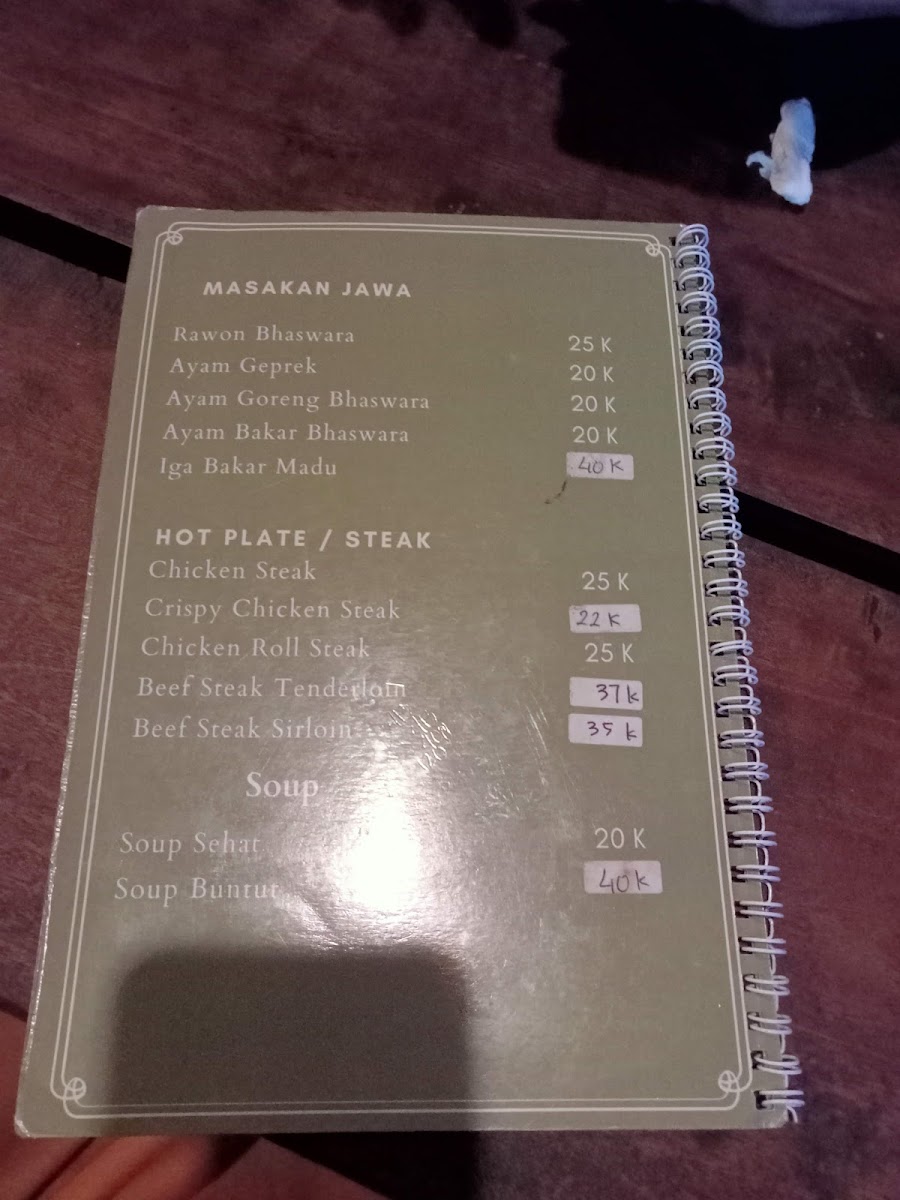 MASAKAN JAWA
Rawon Bhaswara 25 K
Ayam Geprek 20 K
Ayam Goreng Bhaswara 20 K
Ayam Bakar Bhaswara 20 K
Iga Bakar Madu 40 K
HOT PLATE / STEAK
Chicken Steak 25 K
Crispy Chicken Steak 22 K
Chicken Roll Steak 25 K
Beef Steak Tenderloin 37 k
Beef Steak Sirloin 35 k
Soup
Soup Sehat 20 K
Soup Buntut 40 k